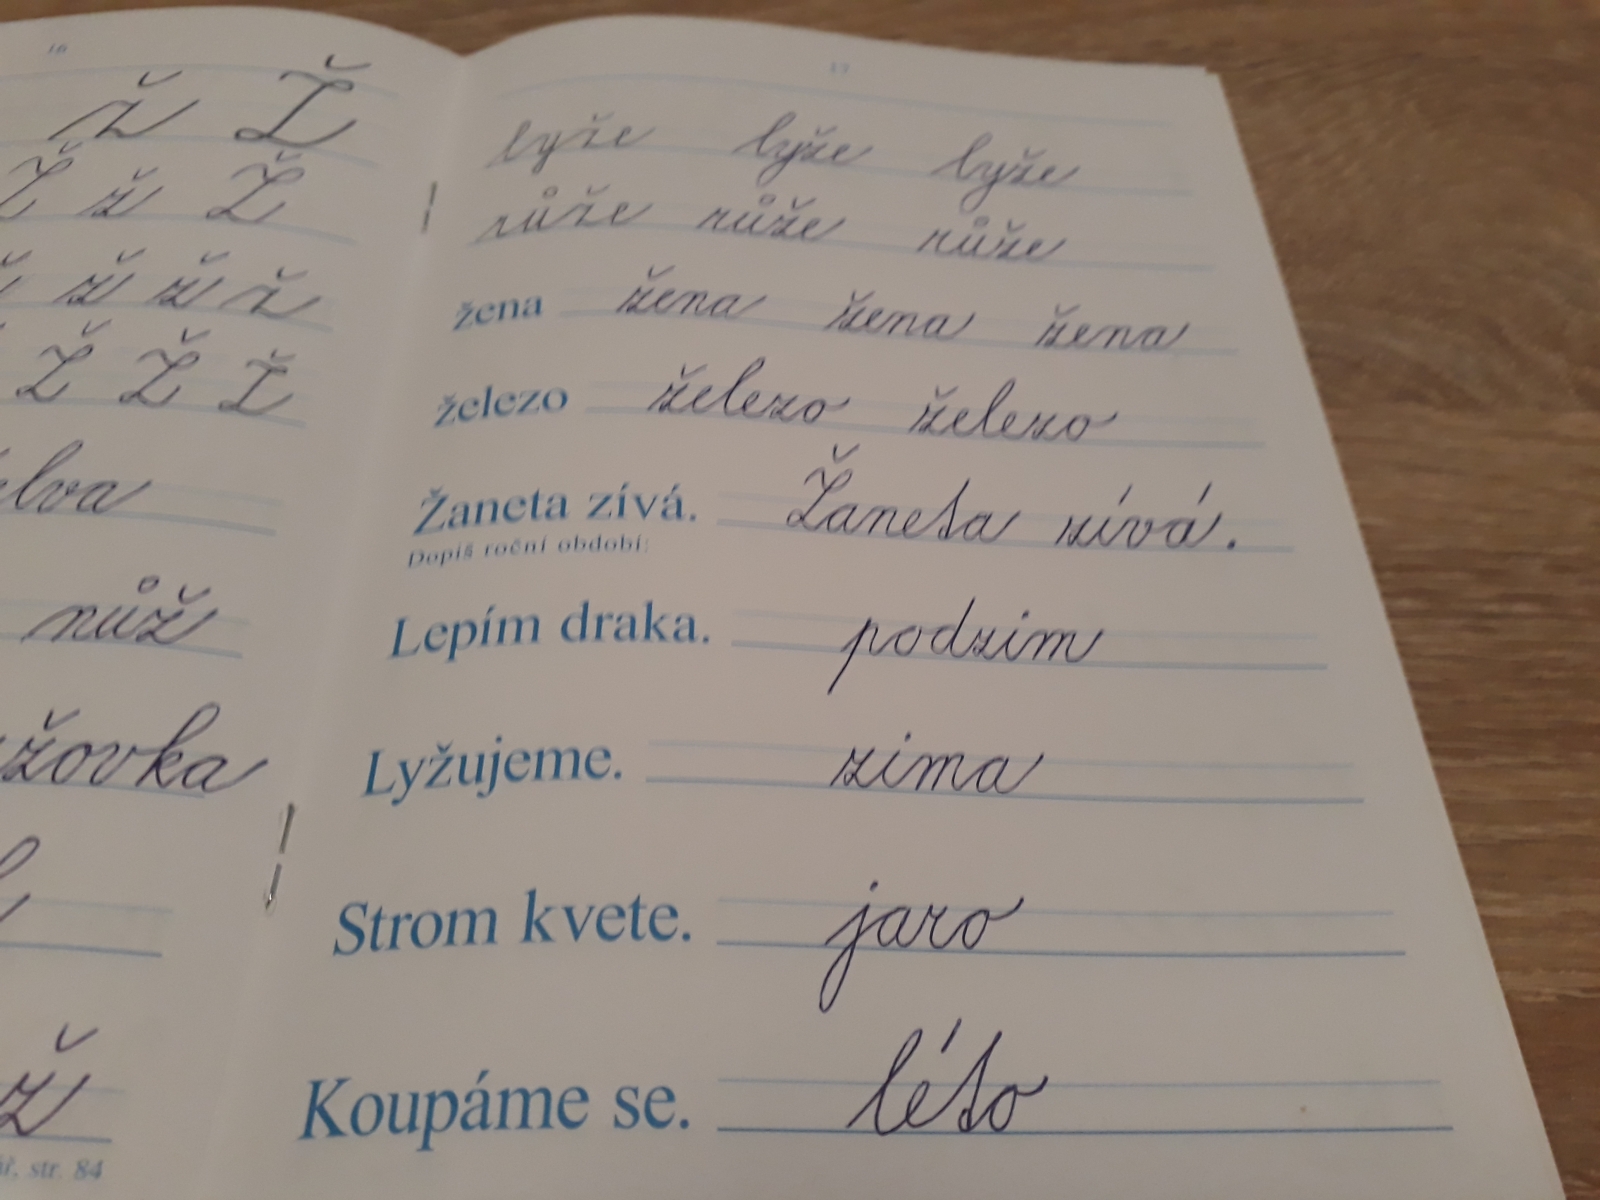 16
ž Ž
Ž ž Ž
ž ž ž
Ž Ž Ž
nůž
ž
str. 84
17
lyže lyže lyže
růže růže růže
žena žena žena žena
železo železo železo
Žaneta zívá. Žaneta zívá.
Dopiš roční období:
Lepím draka. podzim
Lyžujeme. zima
Strom kvete. jaro
Koupáme se. léto